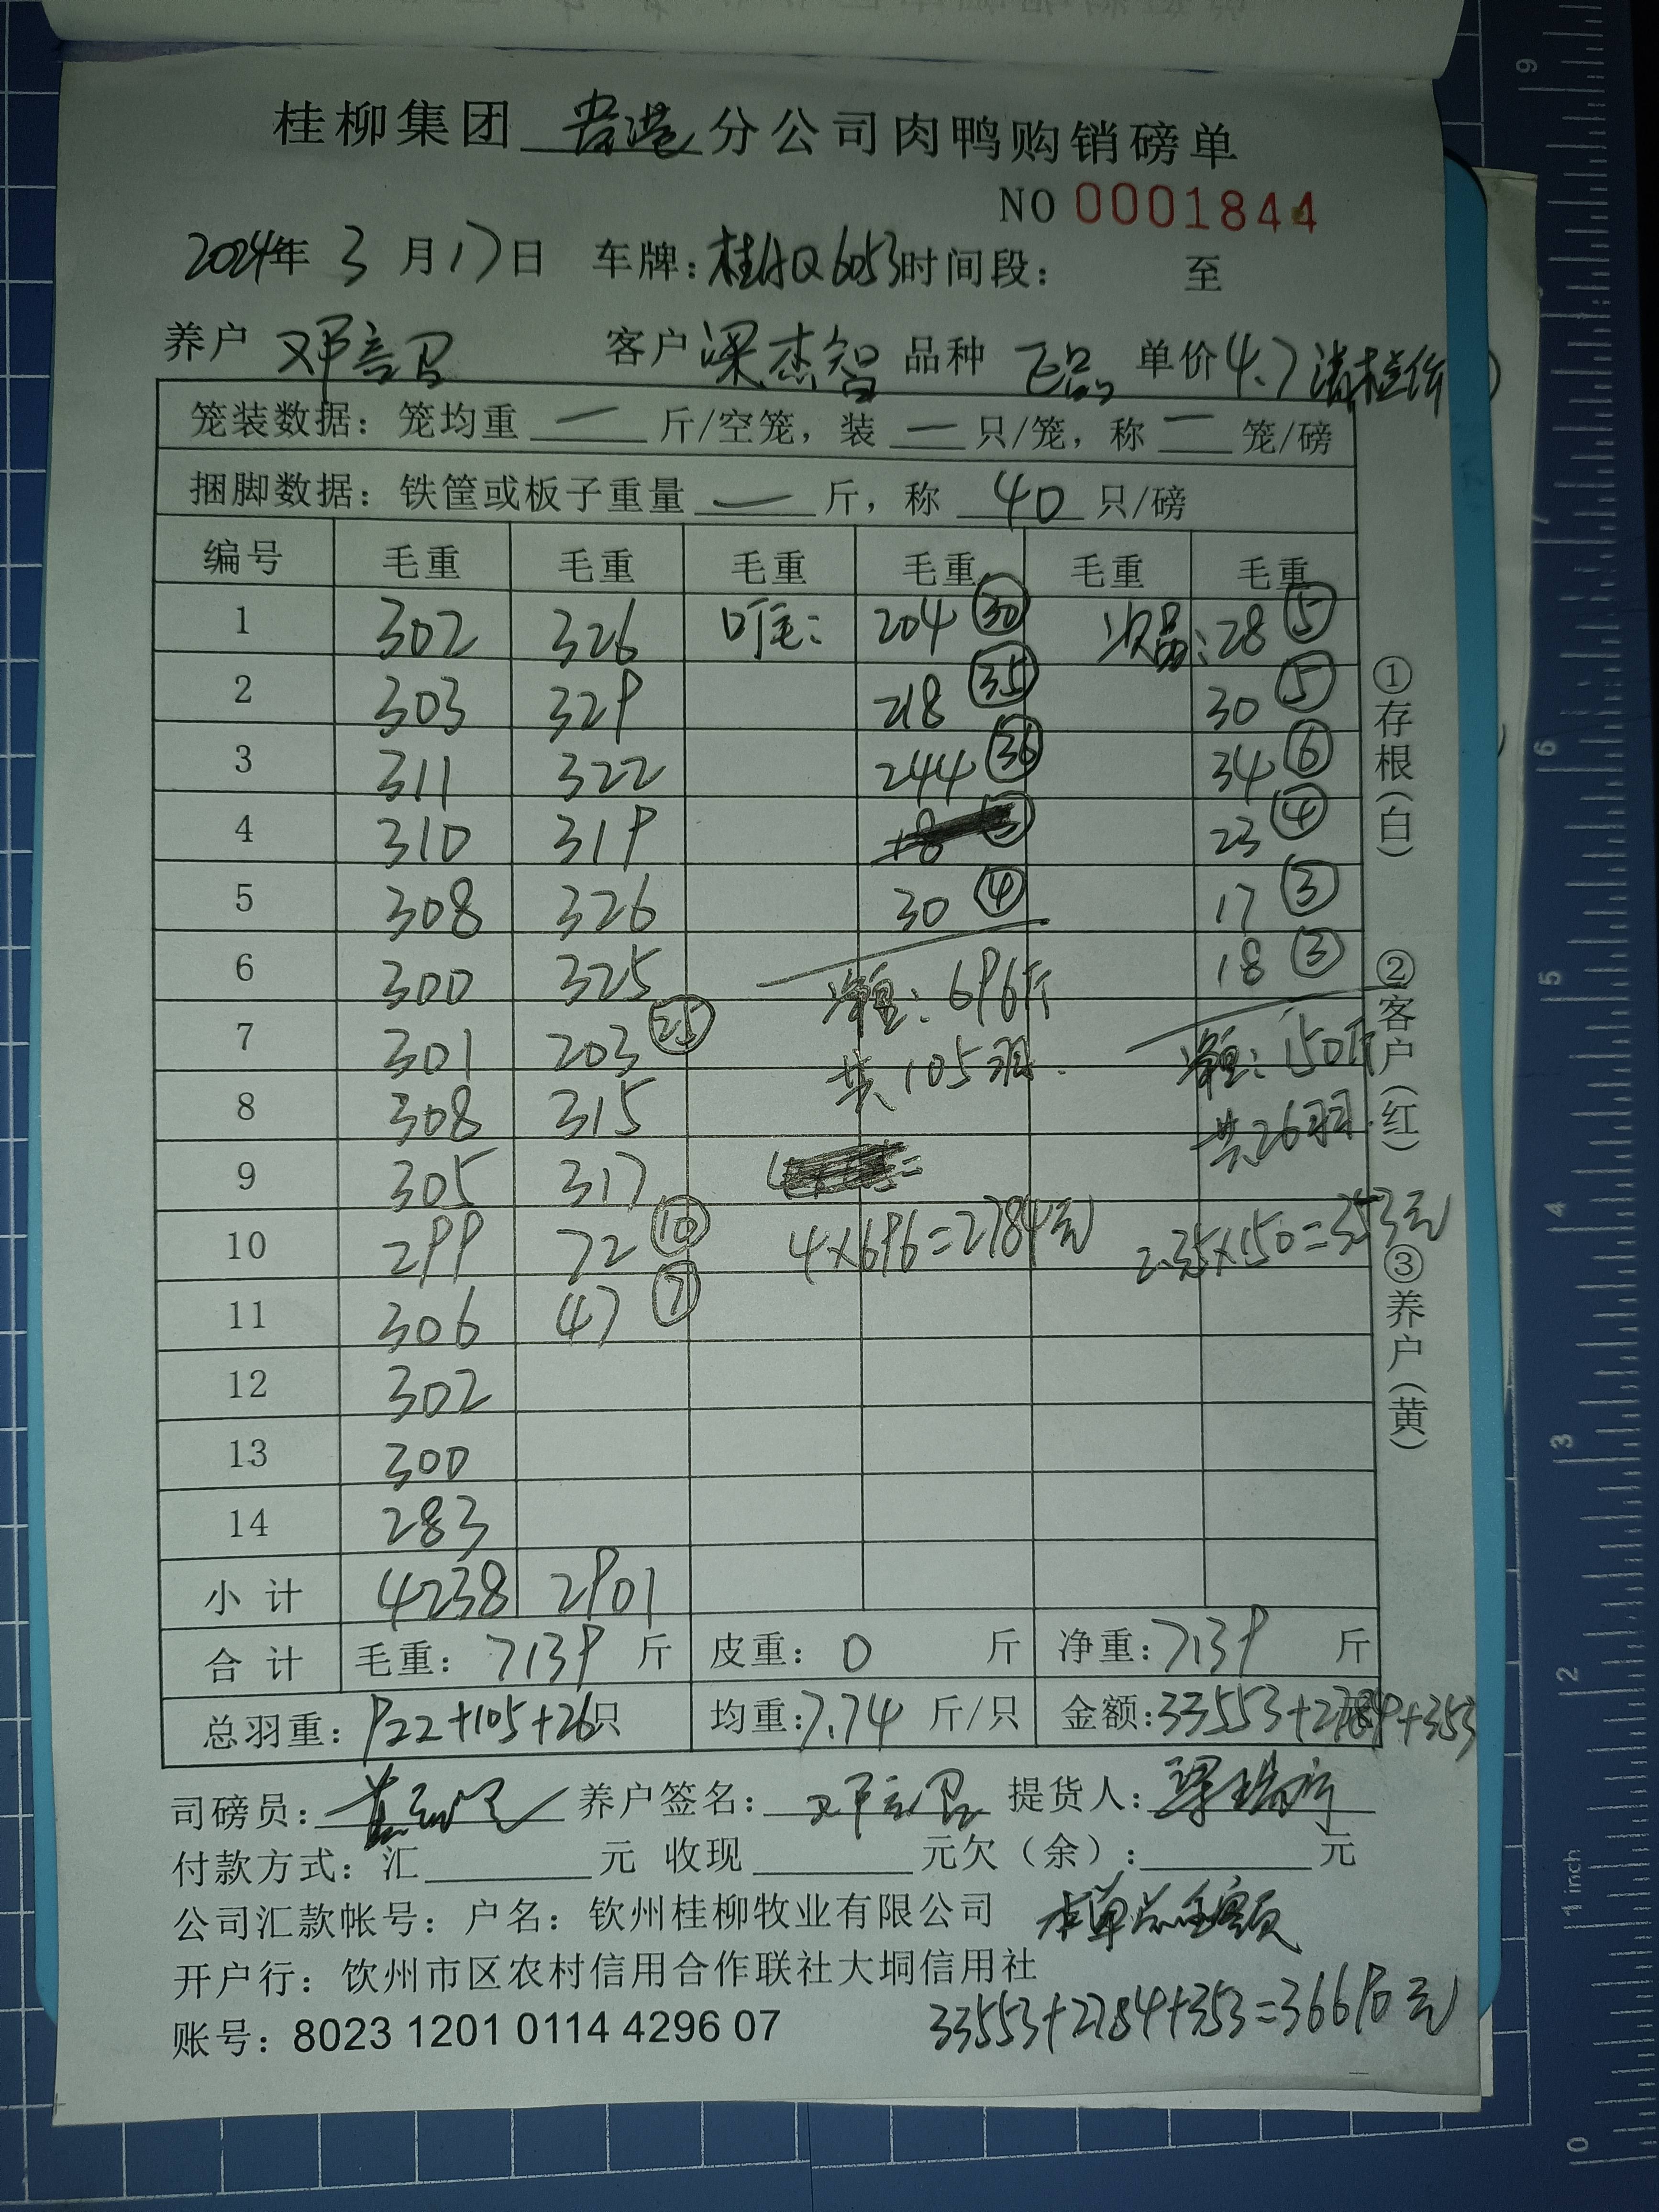 桂柳集团 贵港 分公司肉鸭购销磅单
NO 0001844
2024年 3 月 17 日 车牌：桂AQ6053 时间段： 至
养户 邓言卫 客户 梁杰智 品种 正品 单价 4.7
笼装数据：笼均重 一 斤/空笼，装 一 只/笼，称 一 笼/磅
捆脚数据：铁筐或板子重量 一 斤，称 40 只/磅
编号 毛重 毛重 毛重 毛重 毛重 毛重
1 302 326 吖毛： 204 ㉚ 次品： 28 ⑤
2 303 329 218 ㉟ 30 ⑤
3 311 322 244 ㊱ 34 ⑥
4 310 319 23 ④
5 308 326 30 ④ 17 ③
6 300 325 净重：696斤 18 ③
7 301 203 ㉕ 共105羽. 净重：150斤
8 308 315 共26羽.
9 305 317
10 299 72 ⑩ 4×696=2784元 2.35×150=353元
11 306 47 ⑦
12 302
13 300
14 283
小计 4238 2901
合计 毛重：7139 斤 皮重：0 斤 净重：7139 斤
总羽重：922+105+26只 均重：7.74 斤/只 金额：33553+2784+353
司磅员： 养户签名：邓言卫 提货人：
付款方式：汇 元 收现 元欠（余）： 元
公司汇款帐号：户名：钦州桂柳牧业有限公司 本单总金额
开户行：钦州市区农村信用合作联社大垌信用社
33553+2784+353=36690元
账号：8023 1201 0114 4296 07
①存根（白） ②客户（红） ③养户（黄）
6
5
4
3
2
1 inch
0